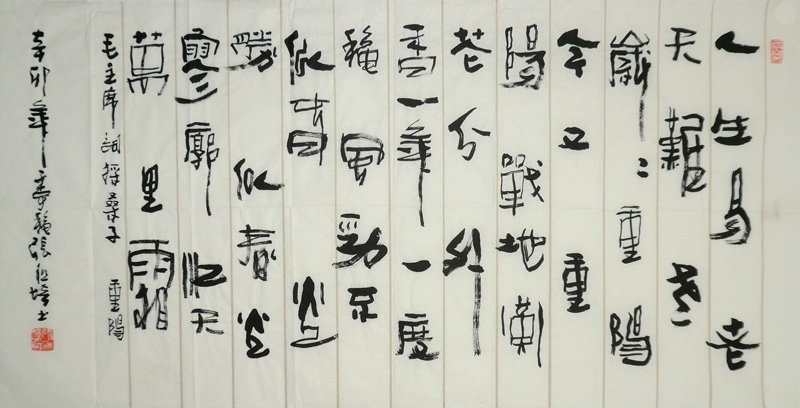 人生易老
天難老
歲〻重陽
今又重
陽戰地黃
芲分外
香一年一度
龝風勁不
似春光
勝似春光
寥廓江天
萬里霜
毛主席詞採桑子 重陽
辛卯年季龝張